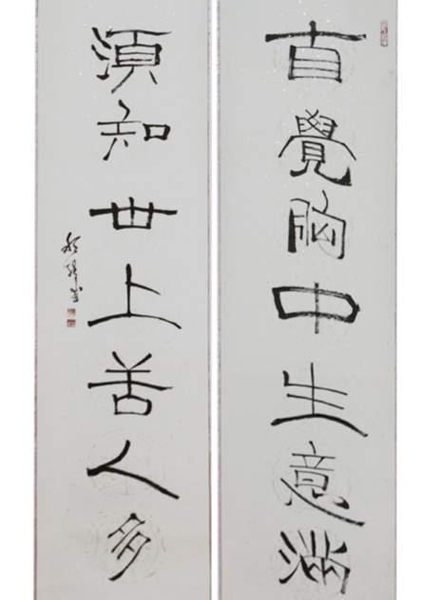 直覺胸中生意滿
須知世上苦人多